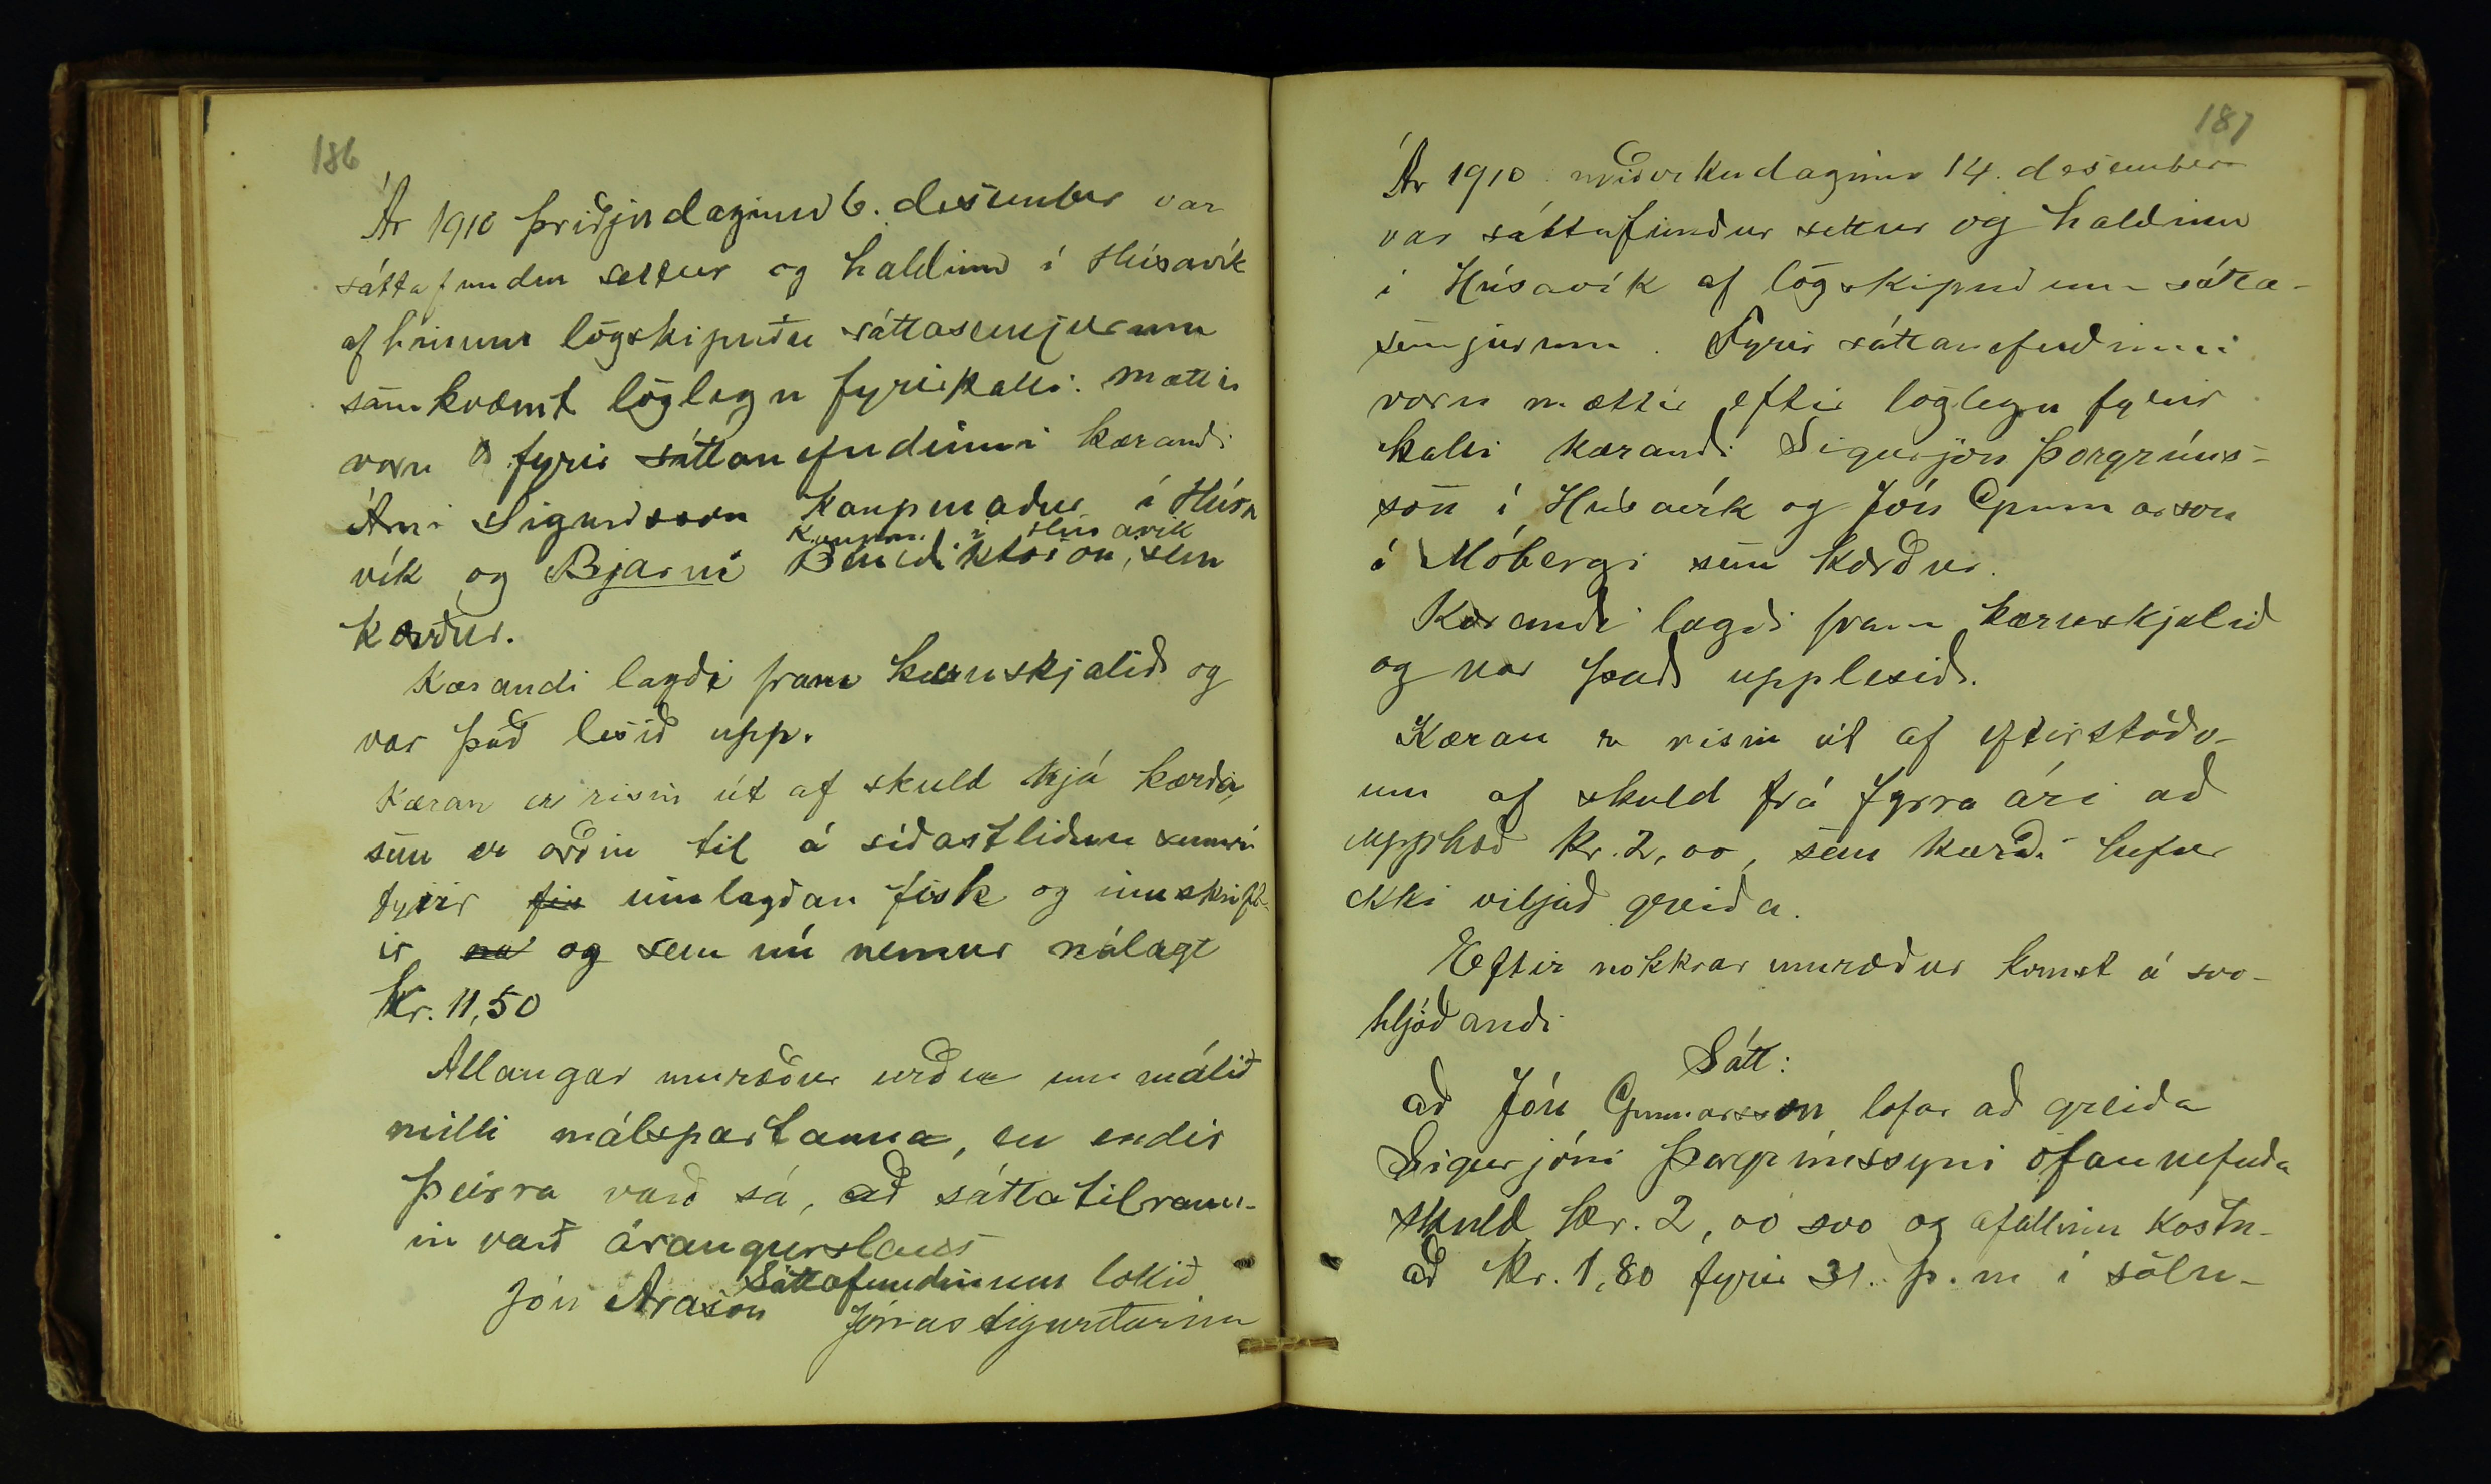 186
Ár 1910 þriðjudaginn 6. desember var
sáttafundur settur og haldinn í Húsavík
af hinum lögskipuðu sáttasemjurum
samkvæmt löglegu fyrirkalli. Mættir
voru fyrir sáttanefndinni kærandi
Árni Sigurðsson kaupmaður í Húsa
kaupm. í Húsavík
vík og Bjarni Benediktsson, sem
kærður.
Kærandi lagði fram kæruskjalið og
var það lesið upp.
Kæran er risin út af skuld hjá kærða,
sem er orðin til á síðastliðnu sumri
fyrir fis innlagðan fisk og innskrift-
ir og sem nú nemur nálægt
kr. 11,50
Allangar umræður urðu um málið
milli málspartanna, en endir
þeirra varð sá, að sáttatilraun-
in varð árangurslaus
Sáttafundinum lokið
Jón Arason Jónas Sigurðsson
187
Ár 1910 miðvikudaginn 14. desember
var sáttafundur settur og haldinn
í Húsavík af lögskipuðum sátta-
semjurum. Fyrir sáttanefndinni
voru mættir eftir löglegu fyrir
kalli kærandi Sigurjón Þorgríms-
son í Húsavík og Jón Gunnarsson
á Móbergi sem kærður.
Kærandi lagði fram kæruskjalið
og var það upplesið.
Kæran er risin út af eftirstöðv-
um af skuld frá fyrra ári að
upphæð kr. 2,00, sem kærði hefur
ekki viljað greiða.
Eftir nokkrar umræður komst á svo-
hljóðandi
Sátt:
að Jón Gunnarsson lofar að greiða
Sigurjóni Þorgrímssyni ofannefnda
skuld kr. 2,00 svo og áfallinn kostn-
að kr. 1,80 fyrir 31. þ. m í sölu-